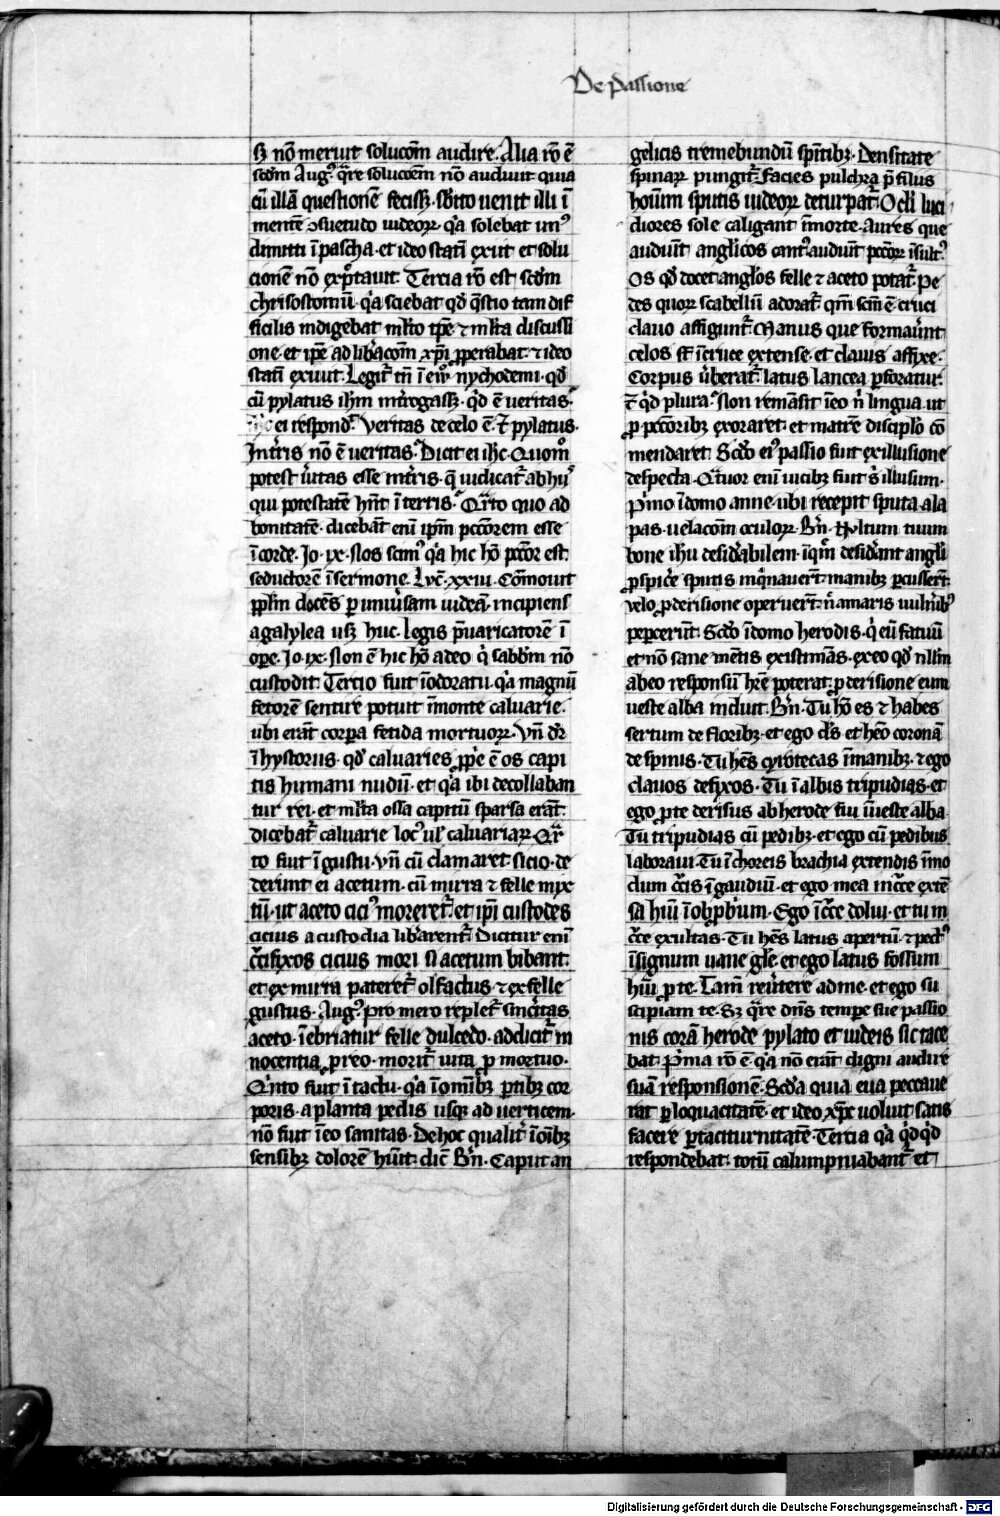 De passione
sꝫ nō meruit solucōm audire. Alia rō ē
scdm Augꝰ. qͣre soluccōem nō audiuit quia
cū illā questionē fecissꝫ. sb̾ito uenit illi ī
mentē ɔsuetudo iudeoꝝ. qͣa solebat unꝰ
dimitti ī pascha. et ideo statī exiit et solu
cionē nō exp̄tauit. Tercia rō est scdm
Chrisostomū. qͣa sciebat qd̾ q̄stio tam dif
ficilis indigebat ml̾to tp̄e. ⁊ ml̾ta discussi
one. et ip̄e ad lib̾acōm xp̄i ꝓperabat. ⁊ ideo
statī exiuit. Legit᷑ tn̄ ī ew̾ nychodemi. qd̾
cū pylatus ih̄m int̾rogassꝫ. qd̾ ē ueritas.
ih̄c ei respond̾. Veritas de celo ē. Et pylatus.
In t̾ris nō ē ueritas. Dicit ei ih̄c. Quom̊
potest u̾itas esse in t̾ris. q̄ iudicat᷑ ab hijs
qui potestatē hn̄t ī terris. Qͣrto quo ad
bonitatē. dicebāt enī ip̄m pccōrem esse
ī corde. Jo. ix. Nos scimꝰ qͣa hic hō pccōr est.
seductorē ī sermone. Luc̄. xxiii. Cōmouit
ppl̾m docēs ꝑ uniu̾sam iudeā. incipiens
a galylea usꝫ huc. Legis p̄uaricatorē ī
oꝑe. Jo. ix. Non ē hic hō a deo qͥ sabb̾m nō
custodit. Tercio fuit ī odoratu. qͣa magnū
fetorē sentire potuit ī monte caluarie.
ubi erāt corꝑa fetida mortuoꝝ. Vn̄ dr̄
ī hystoriis. qd̾ caluaries ꝓp̾e ē os capi
tis humani nudū. et qͣa ibi decollaban
tur rei. et ml̾ta ossa capitū sparsa erāt.
dicebat᷑ caluarie locꝰ ul̾ caluariaꝝ. Qͣr
to fuit ī gustu. vn̄ cū clamaret sicio. de
derunt ei acetum. cū mirra ⁊ felle mix
tū. ut aceto ciciꝰ moreret᷑. et ip̄i custodes
cicius a custodia lib̾arent᷑. Dicitur enī
cͨifixos cicius mori si acetum bibant.
et ex mirra pateret᷑ olfactus. ⁊ ex felle
gustus. Augꝰ. Pro mero replet᷑ sinc̾itas
aceto. īebriatur felle dulcedo. addicit᷑ in
nocentia ꝓ reo. morit᷑ uita ꝓ mortuo.
Qͥnto fuit ī tactu. qͣa ī om̄ibꝫ ꝑtibꝫ cor
poris. a planta pedis usqꝫ ad uerticem.
nō fuit ī eo sanitas. De hoc qualit̾ ī oīb̾ꝫ
sensibꝫ dolorē hūit. dic̄ Bn̄. Caput an
gelicis tremebundū spīritibꝫ. densitate
spinaꝝ pungit᷑. Facies pulchra p̄ filiis
hoīum sputis iudeoꝝ deturpat᷑. Oculi luci
diores sole caligant ī morte. Aures que
audiūt anglicos cantꝰ. audiūt pccōꝝ īsultꝰ.
Os qd̾ docet angl̾os felle ⁊ aceto potat᷑. Pe
des quoꝝ scabellū adorat᷑. qm̄ scm̄ ē cruci
clauo affigunt᷑. Manus que formau̾unt
celos s̄t ī cruce extense. et clauis affixe.
Corpus u̾berat᷑. latus lancea ꝑforatur.
Et qd̾ plura. Non remāsit ī eo nͥ lingua. ut
ꝓ pccōribꝫ exoraret. et matrē discipl̾o cō
mendaret. Scd̾o eiꝰ passio fuit ex illusione
despecta. Qͣtuor enī uicibꝫ fuit sͥ illusum.
Pͥmo ī domo anne. ubi recepit sputa. ala
pas. uelacōm oculoꝝ. Bn̄. Vultum tuum
bone ih̄u desid̾abilem. ī quē desid̾ant angl̾i
ꝓspic̾e sputis inqͥnauerūt. manibꝫ ꝑcusserūt.
velo ꝓ derisione operuerūt. n̄ amaris uuln̾ibꝰ
pepercerūt. Scd̾o ī domo herodis. qͥ eū fatuū
et nō sane mētis existimās. ex eo qd̾ nllm̄
ab eo responsū h̾re poterat. ꝓ derisione eum
ueste alba induit. Bn̄. Tu hō es ⁊ habes
sertum de floribꝫ. et ego ds̄ et heo coronā
de spinis. Tu hēs cyrotecas ī manibꝫ. ⁊ ego
clauos defixos. Tu ī albis tripudias. et
ego ꝓ te derisus ab herode fui ī ueste alba.
Tu tripudias cū pedibꝫ. et ego cū pedibus
laboraui. Tu ī choreis brachia extendis ī mo
dum cͨcis ī gaudiū. et ego mea in cͨce extē
sa hui ī obꝓb̾ium. Ego ī cͨce dolui. et tu in
cͨce exultas. Tu hēs latus apertū. ⁊ pectꝰ
ī signum uane gl̾e. et ego latus fossum
hui ꝓ te. Tam̄ reu̾tere ad me. et ego su
scipiam te. Sꝫ qͣre dn̄s tempe sue passio
nis corā herode pylato et iudeis sic tace
bat. Pͥma rō ē. qͣa nō erāt digni audire
suā responsionē. Scd̾a quia eua peccaue
rat ꝑ loquacitatē. et ideo xp̄c uoluit satis
facere ꝑ taciturnitatē. Tercia qͣa qd̾qd̾
respondebat. totū calumpniabant᷑. et
Digitalisierung gefördert durch die Deutsche Forschungsgemeinschaft - DFG